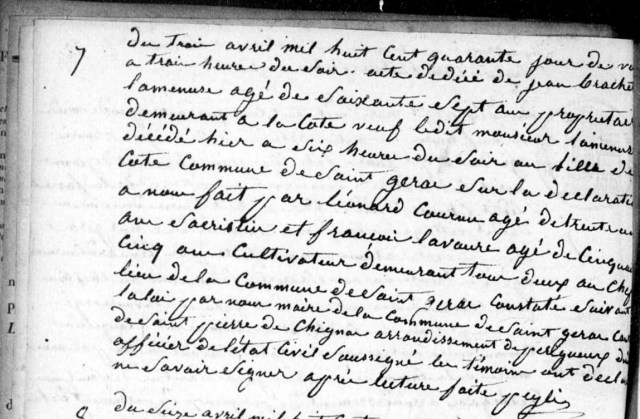 7 du trois avril mil huit cent quarante jour de
a trois heure du soir. acte de décé de jean
lameuse agé de soixante sept ans propriétaire
demeurant a la Cote veuf ledit monsieur lameuse
décédé hier a six heure du soir au de
Cote Commune de Saint gerac sur la declarati
a nous fait par léonard Cournu agé de trente
ans sacristin et françois lavaure agé de Cinqua
Cinq ans Cultivateur demeurant tous deux au Chef
lieu de la Commune de Saint gerac Constaté suivant
la loi par nous maire de la Commune de Saint gerac Can
de Saint pierre de Chignac arrondissement de perigueux
officier de l'état Civil Soussigné les témoin ont declar
ne savoir signer après lecture faite
du Seize avril mil huit Cent
n
p
L
d